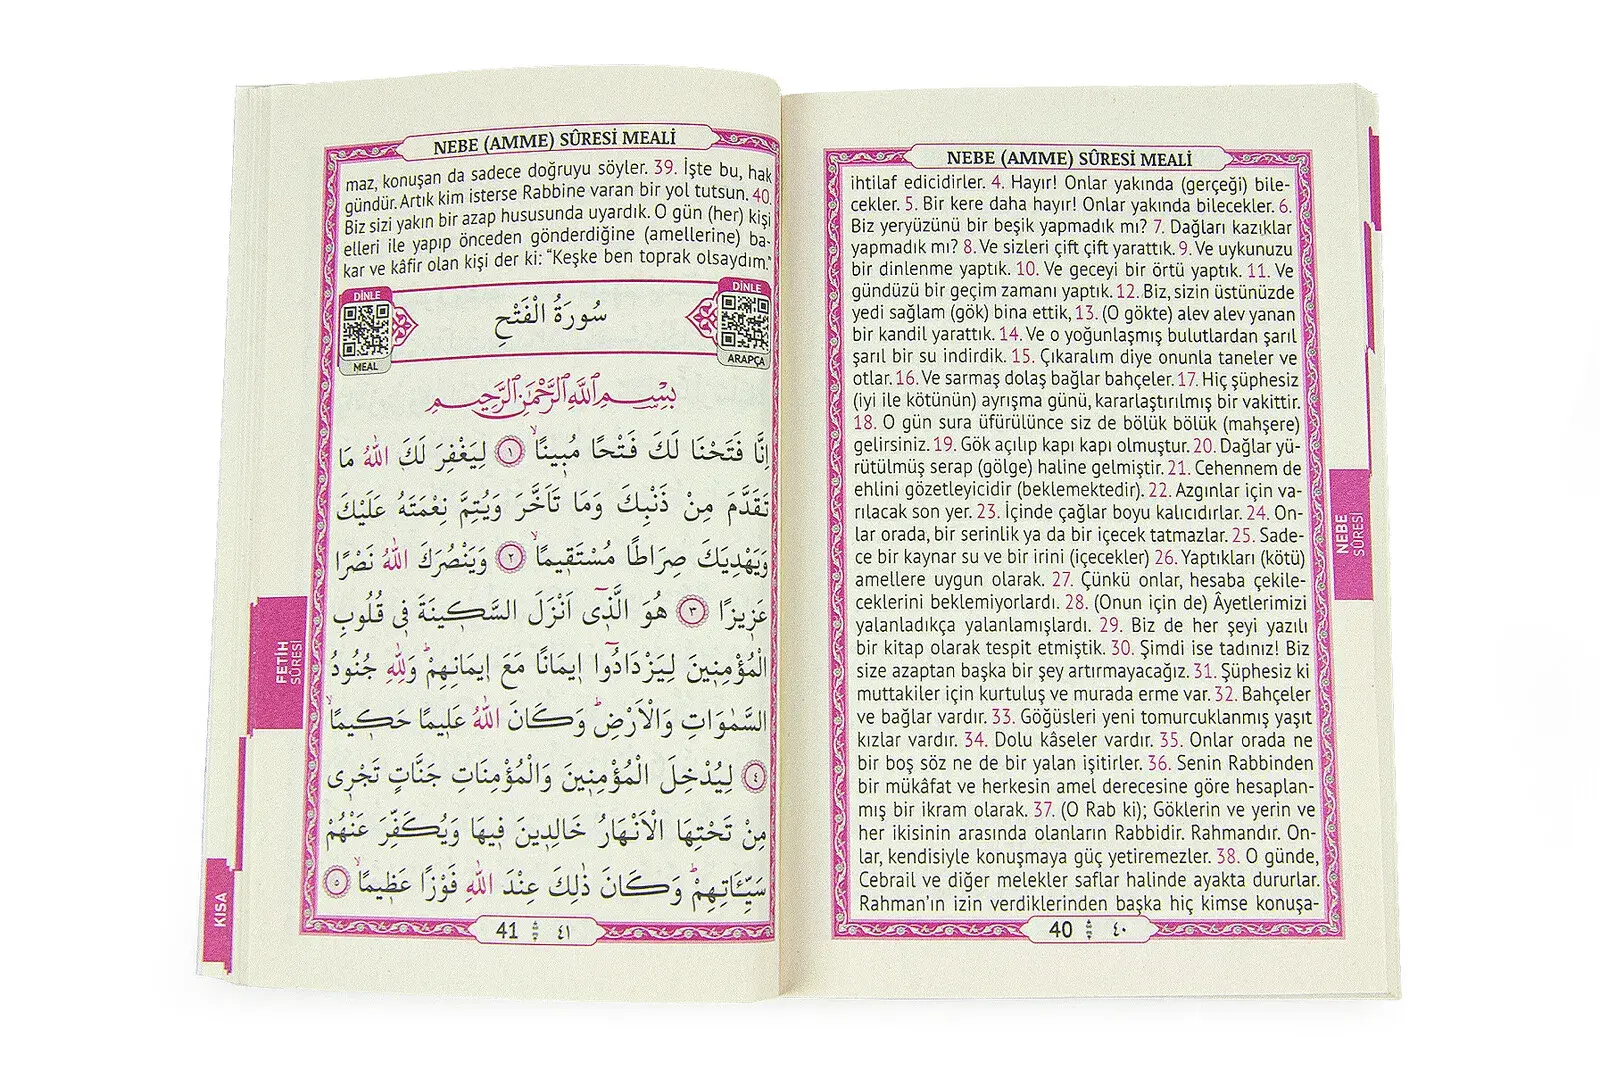 NEBE (AMME) SÛRESİ MEALİ
ihtilaf edicidirler. 4. Hayır! Onlar yakında (gerçeği) bile-
cekler. 5. Bir kere daha hayır! Onlar yakında bilecekler. 6.
Biz yeryüzünü bir beşik yapmadık mı? 7. Dağları kazıklar
yapmadık mı? 8. Ve sizleri çift çift yarattık. 9. Ve uykunuzu
bir dinlenme yaptık. 10. Ve geceyi bir örtü yaptık. 11. Ve
gündüzü bir geçim zamanı yaptık. 12. Biz, sizin üstünüzde
yedi sağlam (gök) bina ettik, 13. (O gökte) alev alev yanan
bir kandil yarattık. 14. Ve o yoğunlaşmış bulutlardan şarıl
şarıl bir su indirdik. 15. Çıkaralım diye onunla taneler ve
otlar. 16. Ve sarmaş dolaş bağlar bahçeler. 17. Hiç şüphesiz
(iyi ile kötünün) ayrışma günü, kararlaştırılmış bir vakittir.
18. O gün sura üfürülünce siz de bölük bölük (mahşere)
gelirsiniz. 19. Gök açılıp kapı kapı olmuştur. 20. Dağlar yü-
rütülmüş serap (gölge) haline gelmiştir. 21. Cehennem de
ehlini gözetleyicidir (beklemektedir). 22. Azgınlar için va-
rılacak son yer. 23. İçinde çağlar boyu kalıcıdırlar. 24. On-
lar orada, bir serinlik ya da bir içecek tatmazlar. 25. Sade-
ce bir kaynar su ve bir irini (içecekler) 26. Yaptıkları (kötü)
amellere uygun olarak. 27. Çünkü onlar, hesaba çekile-
ceklerini beklemiyorlardı. 28. (Onun için de) Âyetlerimizi
yalanladıkça yalanlamışlardı. 29. Biz de her şeyi yazılı
bir kitap olarak tespit etmiştik. 30. Şimdi ise tadınız! Biz
size azaptan başka bir şey artırmayacağız. 31. Şüphesiz ki
muttakiler için kurtuluş ve murada erme var. 32. Bahçeler
ve bağlar vardır. 33. Göğüsleri yeni tomurcuklanmış yaşıt
kızlar vardır. 34. Dolu kâseler vardır. 35. Onlar orada ne
bir boş söz ne de bir yalan işitirler. 36. Senin Rabbinden
bir mükâfat ve herkesin amel derecesine göre hesaplan-
mış bir ikram olarak. 37. (O Rab ki); Göklerin ve yerin ve
her ikisinin arasında olanların Rabbidir. Rahmandır. On-
lar, kendisiyle konuşmaya güç yetiremezler. 38. O günde,
Cebrail ve diğer melekler saflar halinde ayakta dururlar.
Rahman'ın izin verdiklerinden başka hiç kimse konuşa-
40 ٤٠
NEBE
SÛRESİ
NEBE (AMME) SÛRESİ MEALİ
maz, konuşan da sadece doğruyu söyler. 39. İşte bu, hak
gündür. Artık kim isterse Rabbine varan bir yol tutsun. 40.
Biz sizi yakın bir azap hususunda uyardık. O gün (her) kişi
elleri ile yapıp önceden gönderdiğine (amellerine) ba-
kar ve kâfir olan kişi der ki: “Keşke ben toprak olsaydım.”
DİNLE
MEAL
سُورَةُ الْفَتْحِ
DİNLE
ARAPÇA
بِسْمِ اللّٰهِ الرَّحْمٰنِ الرَّحِيمِ
اِنَّا فَتَحْنَا لَكَ فَتْحًا مُب۪ينًاۙ ﴿١﴾ لِيَغْفِرَ لَكَ اللّٰهُ مَا
تَقَدَّمَ مِنْ ذَنْبِكَ وَمَا تَاَخَّرَ وَيُتِمَّ نِعْمَتَهُ عَلَيْكَ
وَيَهْدِيَكَ صِرَاطًا مُسْتَق۪يمًاۙ ﴿٢﴾ وَيَنْصُرَكَ اللّٰهُ نَصْرًا
عَز۪يزًا ﴿٣﴾ هُوَ الَّذ۪ٓي اَنْزَلَ السَّك۪ينَةَ ف۪ي قُلُوبِ
الْمُؤْمِن۪ينَ لِيَزْدَادُٓوا ا۪يمَانًا مَعَ ا۪يمَانِهِمْۜ وَلِلّٰهِ جُنُودُ
السَّمٰوَاتِ وَالْاَرْضِۜ وَكَانَ اللّٰهُ عَل۪يمًا حَك۪يمًاۙ
﴿٤﴾ لِيُدْخِلَ الْمُؤْمِن۪ينَ وَالْمُؤْمِنَاتِ جَنَّاتٍ تَجْر۪ي
مِنْ تَحْتِهَا الْاَنْهَارُ خَالِد۪ينَ ف۪يهَا وَيُكَفِّرَ عَنْهُمْ
سَيِّـَٔاتِهِمْۜ وَكَانَ ذٰلِكَ عِنْدَ اللّٰهِ فَوْزًا عَظ۪يمًاۙ ﴿٥﴾
41 ٤١
FETİH
SÛRESİ
KISA